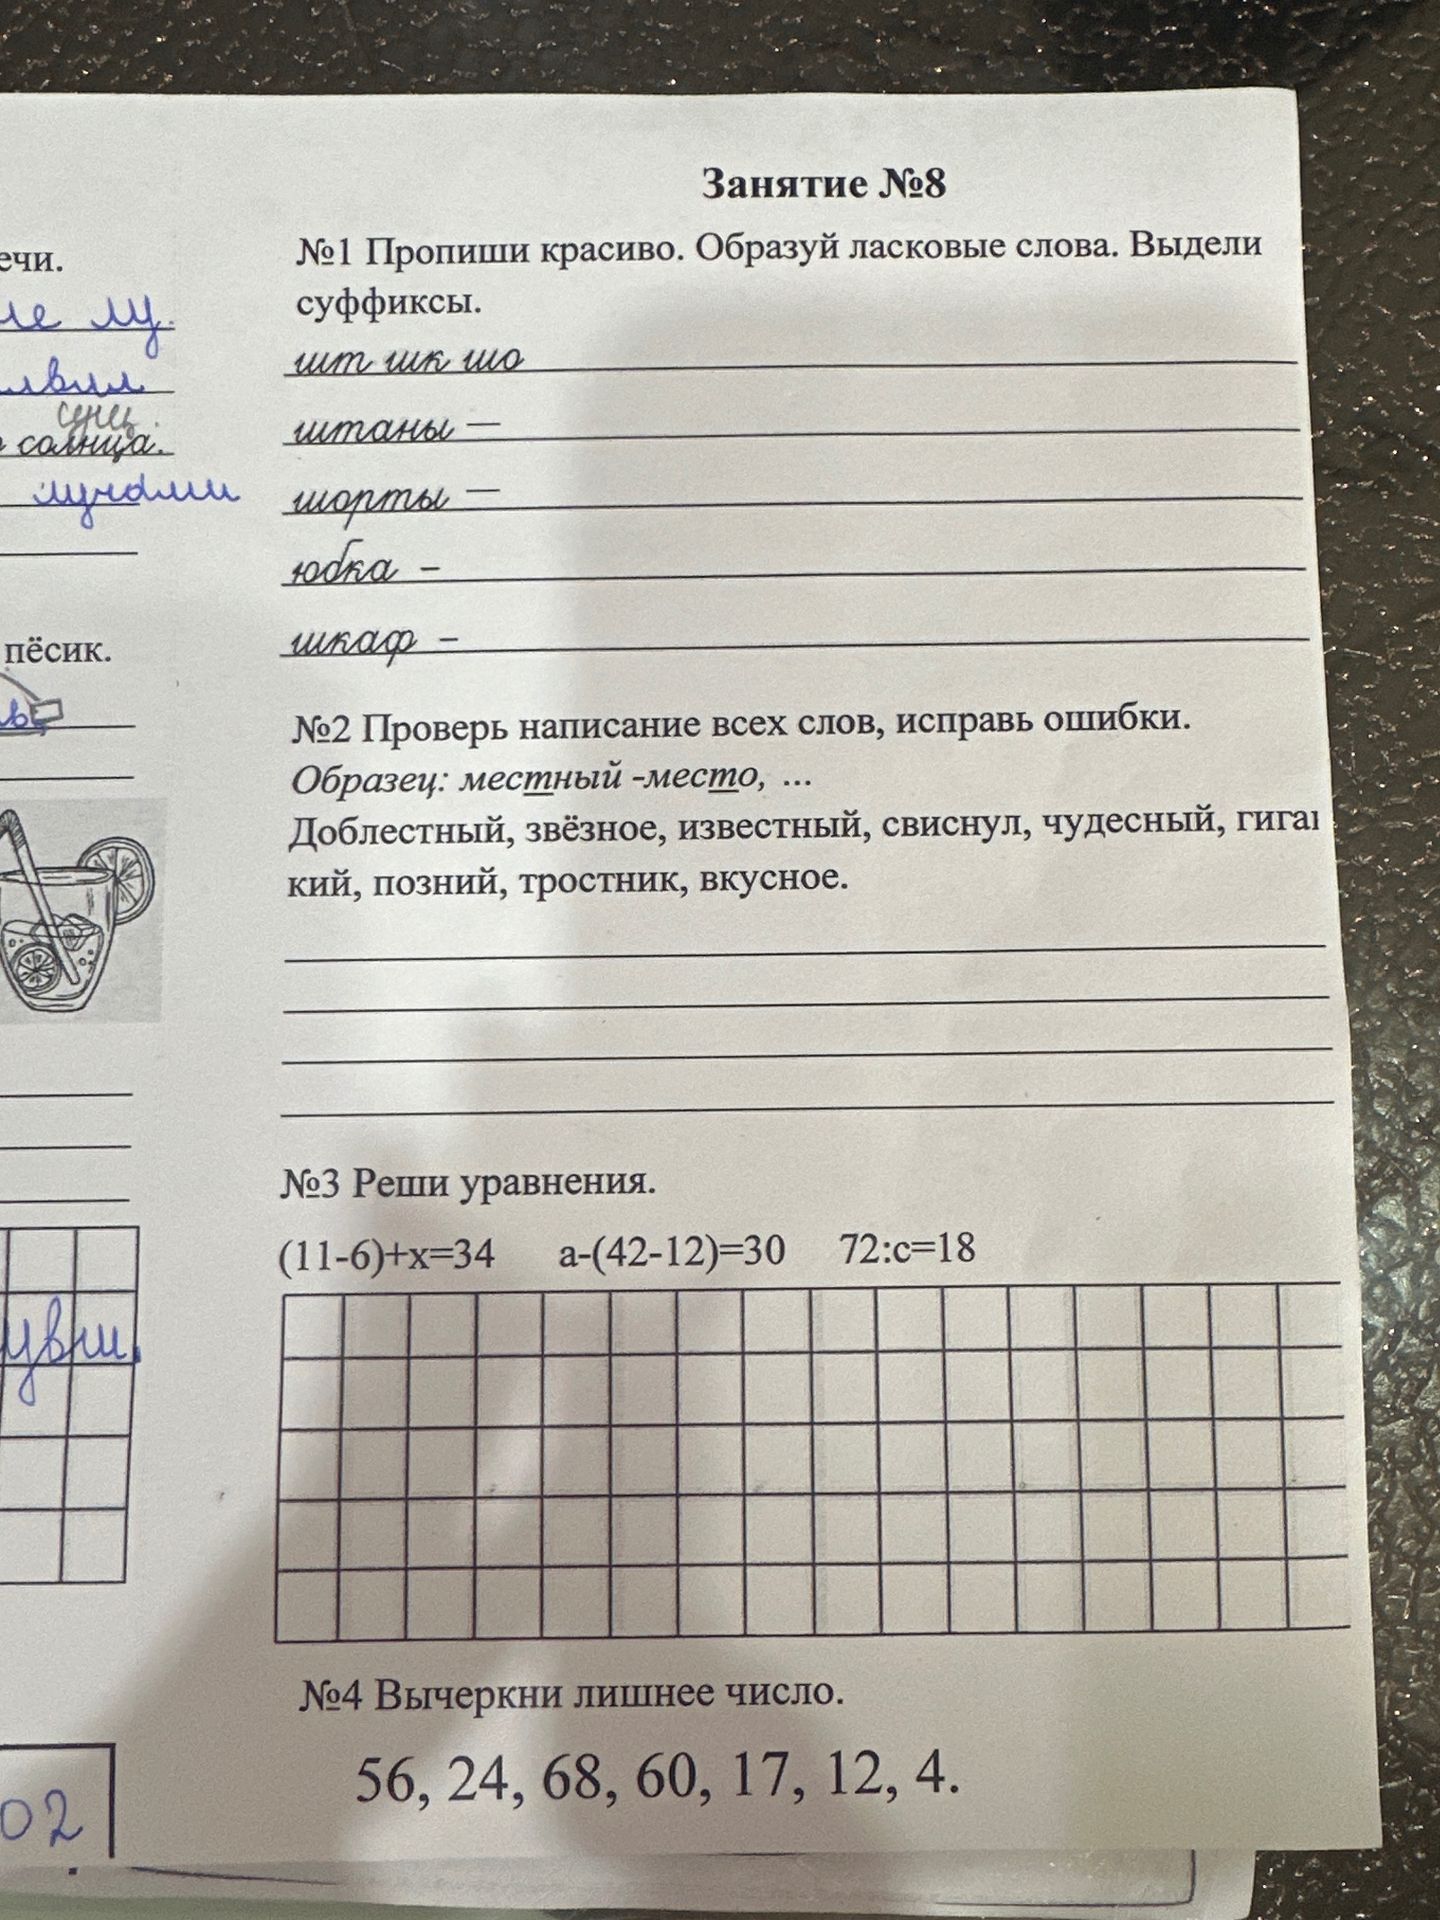 ечи.
лу.
сущ.
солнца.
лучами
пёсик.
02
Занятие №8
№1 Пропиши красиво. Образуй ласковые слова. Выдели
суффиксы.
шт шк шо
штаны —
шорты —
юбка -
шкаф -
№2 Проверь написание всех слов, исправь ошибки.
Образец: местный -место, ...
Доблестный, звёзное, известный, свиснул, чудесный, гиган
кий, позний, тростник, вкусное.
№3 Реши уравнения.
(11-6)+х=34 а-(42-12)=30 72:с=18
№4 Вычеркни лишнее число.
56, 24, 68, 60, 17, 12, 4.